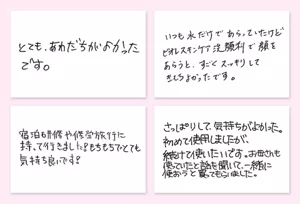 とても、あわだちがよかった
です。
いつも水だけであらっていたけど
ビオレスキンケア洗顔料で顔を
あらうと、すごくスッキリして
きもちよかったです。
宿泊研修や修学旅行に
持って行きました!もちもちでとても
気持ち良いです!
さっぱりして、気持ちがよかった。
初めて使用しましたが、
続けて使いたいです。お母さんも
使っていたと話を聞いて、一緒に
使おうと言ってもらいました。